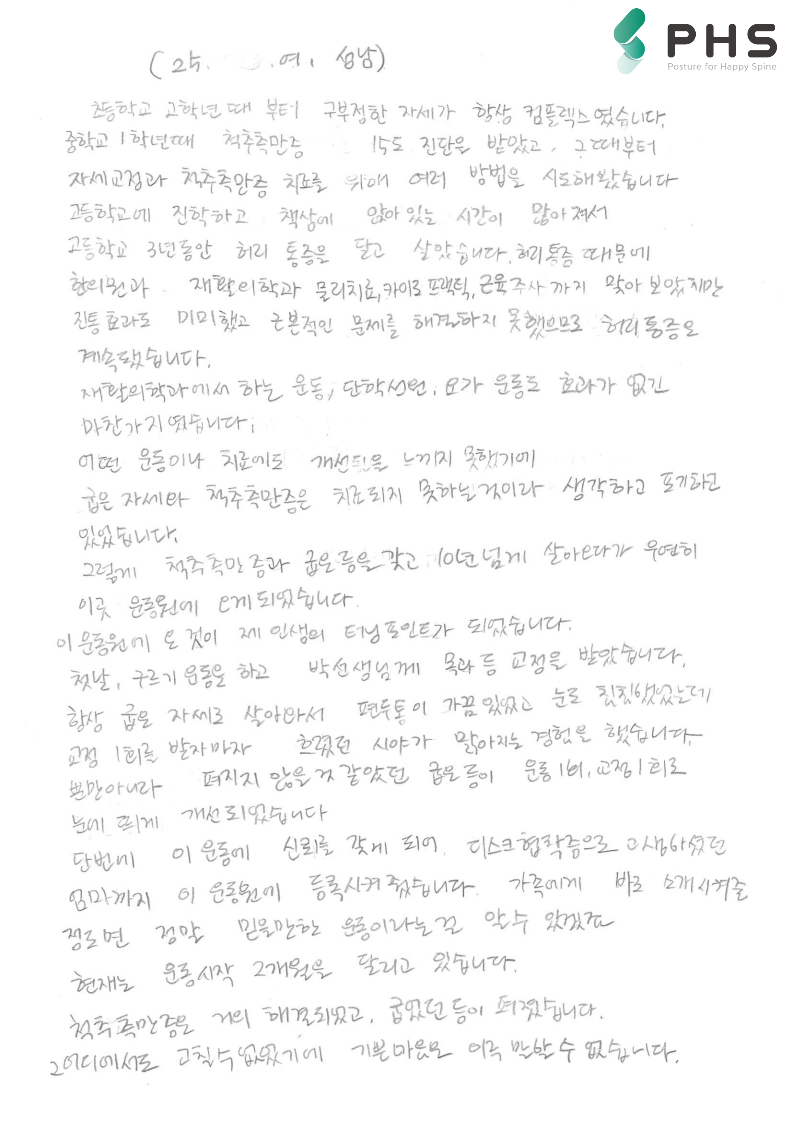 PHS
Posture for Happy Spine
(25. 여. 성남)
초등학교 고학년때 부터 구부정한 자세가 항상 컴플렉스였습니다.
중학교 1학년때 척추측만증 15도 진단을 받았고, 그때부터
자세교정과 척추측만증 치료를 위해 여러 방법을 시도해왔습니다
고등학교에 진학하고 책상에 앉아있는 시간이 많아져서
고등학교 3년동안 허리 통증을 달고 살았습니다. 허리통증 때문에
한의원과 재활의학과 물리치료, 카이로프랙틱, 근육주사까지 맞아보았지만
진통효과도 미미했고 근본적인 문제를 해결하지 못했으므로 허리통증은
계속됐습니다.
재활의학과에서 하는 운동, 단학선원, 요가 운동도 효과가 없긴
마찬가지였습니다.
어떤 운동이나 치료에도 개선됨을 느끼지 못했기에
굽은 자세와 척추측만증은 치료되지 못하는것이라 생각하고 포기하고
있었습니다.
그렇게 척추측만증과 굽은등을 갖고 10년넘게 살아오다가 우연히
이곳 운동원에 오게되었습니다.
이 운동원에 온 것이 제 인생의 터닝포인트가 되었습니다.
첫날, 구르기운동을 하고 박선생님께 목과등 교정을 받았습니다.
항상 굽은 자세로 살아와서 편두통이 가끔있었고 눈도 침침했었는데
교정 1회를 받자마자 흐렸던 시야가 맑아지는 경험을 했습니다.
뿐만아니라 펴지지 않을것 같았던 굽은등이 운동1회, 교정1회로
눈에 띄게 개선되었습니다
단번에 이 운동에 신뢰를 갖게 되어, 디스크협착증으로 고생하셨던
엄마까지 이 운동원에 등록시켜줬습니다. 가족에게 바로 소개시켜줄
정도면 정말 믿을만한 운동이라는걸 알수 있겠죠
현재는 운동시작 2개월을 달리고 있습니다.
척추측만증은 거의 해결되었고, 굽었던등이 펴졌습니다.
어디에서도 고칠수없었기에 기쁜마음은 이루 말할 수 없습니다.